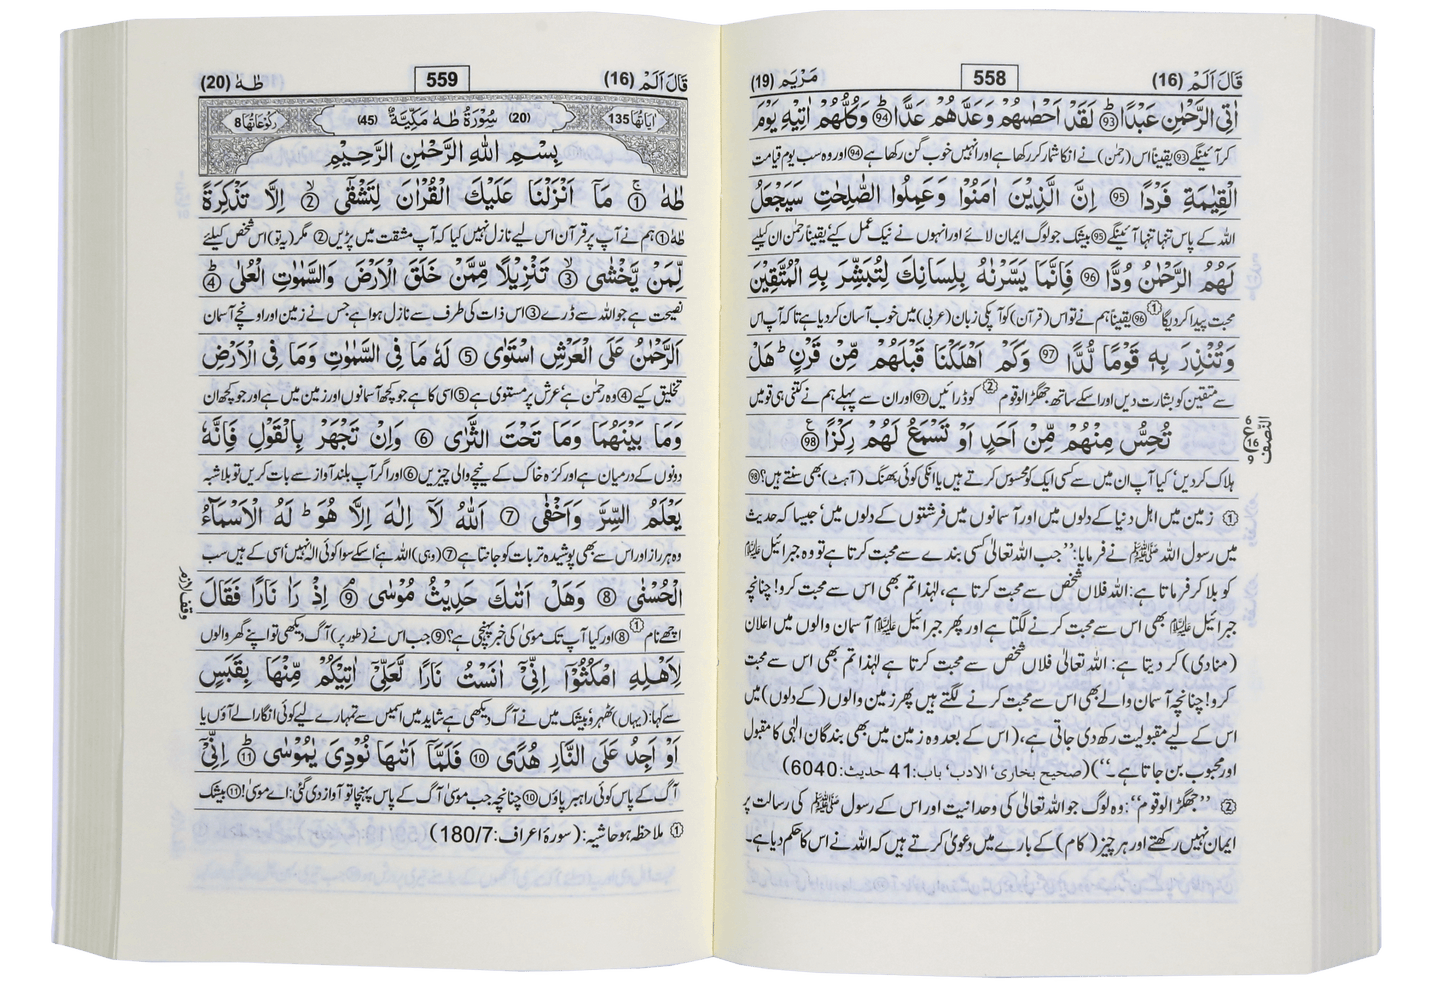 قَالَ اَلَمْ (16)
558
مَرْيَم (19)
اٰتِى الرَّحْمٰنِ عَبْدًا ﴿93﴾ لَقَدْ اَحْصٰىهُمْ وَعَدَّهُمْ عَدًّا ﴿94﴾ وَكُلُّهُمْ اٰتِيْهِ يَوْمَ
کر آئینگے ﴿93﴾ یقیناً اس (رحمٰن) نے انکا شمار کر رکھا ہے اور انہیں خوب گن رکھا ہے ﴿94﴾ اور وہ سب یوم قیامت
الْقِيٰمَةِ فَرْدًا ﴿95﴾ اِنَّ الَّذِيْنَ اٰمَنُوْا وَعَمِلُوا الصّٰلِحٰتِ سَيَجْعَلُ
اللہ کے پاس تنہا تنہا آئینگے ﴿95﴾ بیشک جو لوگ ایمان لائے اور انہوں نے نیک عمل کیے یقیناً رحمٰن ان کیلیے
لَهُمُ الرَّحْمٰنُ وُدًّا ﴿96﴾ فَاِنَّمَا يَسَّرْنٰهُ بِلِسَانِكَ لِتُبَشِّرَ بِهِ الْمُتَّقِيْنَ
محبت پیدا کر دیگا ① ﴿96﴾ یقیناً ہم نے تو اس (قرآن) کو آپکی زبان (عربی) میں خوب آسان کر دیا ہے تاکہ آپ اس
وَتُنْذِرَ بِهٖ قَوْمًا لُّدًّا ﴿97﴾ وَكَمْ اَهْلَكْنَا قَبْلَهُمْ مِّنْ قَرْنٍ ؕ هَلْ
سے متقین کو بشارت دیں اور اسکے ساتھ جھگڑالو قوم ② کو ڈرائیں ﴿97﴾ اور ان سے پہلے ہم نے کتنی ہی قومیں
تُحِسُّ مِنْهُمْ مِّنْ اَحَدٍ اَوْ تَسْمَعُ لَهُمْ رِكْزًا ﴿98﴾
النصف
ہلاک کر دیں، کیا آپ ان میں سے کسی ایک کو محسوس کرتے ہیں یا انکی کوئی بھنک (آہٹ) بھی سنتے ہیں؟ ﴿98﴾
① زمین میں اہل دنیا کے دلوں میں اور آسمانوں میں فرشتوں کے دلوں میں، جیسا کہ حدیث
میں رسول اللہ ﷺ نے فرمایا: ’’جب اللہ تعالیٰ کسی بندے سے محبت کرتا ہے تو وہ جبرائیل علیہ السلام
کو بلا کر فرماتا ہے: اللہ فلاں شخص سے محبت کرتا ہے، لہٰذا تم بھی اس سے محبت کرو! چنانچہ
جبرائیل علیہ السلام بھی اس سے محبت کرنے لگتا ہے اور پھر جبرائیل علیہ السلام آسمان والوں میں اعلان
(منادی) کر دیتا ہے: اللہ تعالیٰ فلاں شخص سے محبت کرتا ہے لہٰذا تم بھی اس سے محبت
کرو! چنانچہ آسمان والے بھی اس سے محبت کرنے لگتے ہیں پھر زمین والوں (کے دلوں) میں
اس کے لیے مقبولیت رکھ دی جاتی ہے، (اس کے بعد وہ زمین میں بھی بندگان الٰہی کا مقبول
اور محبوب بن جاتا ہے۔‘‘) (صحیح بخاری، الادب، باب: 41 حدیث: 6040)
② ’’جھگڑالو قوم‘‘: وہ لوگ جو اللہ تعالیٰ کی وحدانیت اور اس کے رسول ﷺ کی رسالت پر
ایمان نہیں رکھتے اور ہر چیز (کام) کے بارے میں دعویٰ کرتے ہیں کہ اللہ نے اس کا حکم دیا ہے۔
قَالَ اَلَمْ (16)
559
طٰهٰ (20)
اٰیَاتُهَا 135
(20) سُوْرَةُ طٰهٰ مَكِّيَّةٌ (45)
رُكُوْعَاتُهَا 8
بِسْمِ اللّٰهِ الرَّحْمٰنِ الرَّحِيْمِ
طٰهٰ ﴿1﴾ مَاۤ اَنْزَلْنَا عَلَيْكَ الْقُرْاٰنَ لِتَشْقٰٓى ﴿2﴾ اِلَّا تَذْكِرَةً
طٰہٰ ﴿1﴾ ہم نے آپ پر قرآن اس لیے نازل نہیں کیا کہ آپ مشقت میں پڑیں ﴿2﴾ مگر (یہ تو) اس شخص کیلئے
لِّمَنْ يَّخْشٰى ﴿3﴾ تَنْزِيْلًا مِّمَّنْ خَلَقَ الْاَرْضَ وَالسَّمٰوٰتِ الْعُلٰى ﴿4﴾
نصیحت ہے جو اللہ سے ڈرے ﴿3﴾ اس ذات کی طرف سے نازل ہوا ہے جس نے زمین اور اونچے آسمان
اَلرَّحْمٰنُ عَلَى الْعَرْشِ اسْتَوٰى ﴿5﴾ لَهٗ مَا فِى السَّمٰوٰتِ وَمَا فِى الْاَرْضِ
تخلیق کیے ﴿4﴾ وہ رحمٰن ہے، عرش پر مستوی ہے ﴿5﴾ اسی کا ہے جو کچھ آسمانوں اور زمین میں ہے اور جو کچھ ان
وَمَا بَيْنَهُمَا وَمَا تَحْتَ الثَّرٰى ﴿6﴾ وَاِنْ تَجْهَرْ بِالْقَوْلِ فَاِنَّهٗ
دونوں کے درمیان ہے اور کرۂ خاک کے نیچے والی چیزیں ﴿6﴾ اور اگر آپ بلند آواز سے بات کریں تو بلاشبہ
يَعْلَمُ السِّرَّ وَاَخْفٰى ﴿7﴾ اَللّٰهُ لَاۤ اِلٰهَ اِلَّا هُوَ ؕ لَهُ الْاَسْمَآءُ
وہ ہر راز اور اس سے بھی پوشیدہ تر بات کو جانتا ہے ﴿7﴾ (وہی) اللہ ہے، اسکے سوا کوئی الٰہ نہیں، اسی کے ہیں سب
الْحُسْنٰى ﴿8﴾ وَهَلْ اَتٰىكَ حَدِيْثُ مُوْسٰى ﴿9﴾ اِذْ رَاٰ نَارًا فَقَالَ
اچھے نام ① ﴿8﴾ اور کیا آپ تک موسیٰ کی خبر پہنچی ہے؟ ﴿9﴾ جب اس نے (طور پر) آگ دیکھی تو اپنے گھر والوں
لِاَهْلِهِ امْكُثُوْۤا اِنِّىْۤ اٰنَسْتُ نَارًا لَّعَلِّىْۤ اٰتِيْكُمْ مِّنْهَا بِقَبَسٍ
سے کہا: (یہاں) ٹھہرو! بیشک میں نے آگ دیکھی ہے شاید میں اسمیں سے تمہارے لیے کوئی انگارا لے آؤں یا
اَوْ اَجِدُ عَلَى النَّارِ هُدًى ﴿10﴾ فَلَمَّاۤ اَتٰىهَا نُوْدِىَ يٰمُوْسٰى ﴿11﴾ اِنِّىْۤ
آگ کے پاس کوئی راہبر پاؤں ﴿10﴾ چنانچہ جب موسیٰ آگ کے پاس پہنچا تو آواز دی گئی: اے موسیٰ! ﴿11﴾ بیشک
① ملاحظہ ہو حاشیہ: (سورۂ اعراف: 180/7)